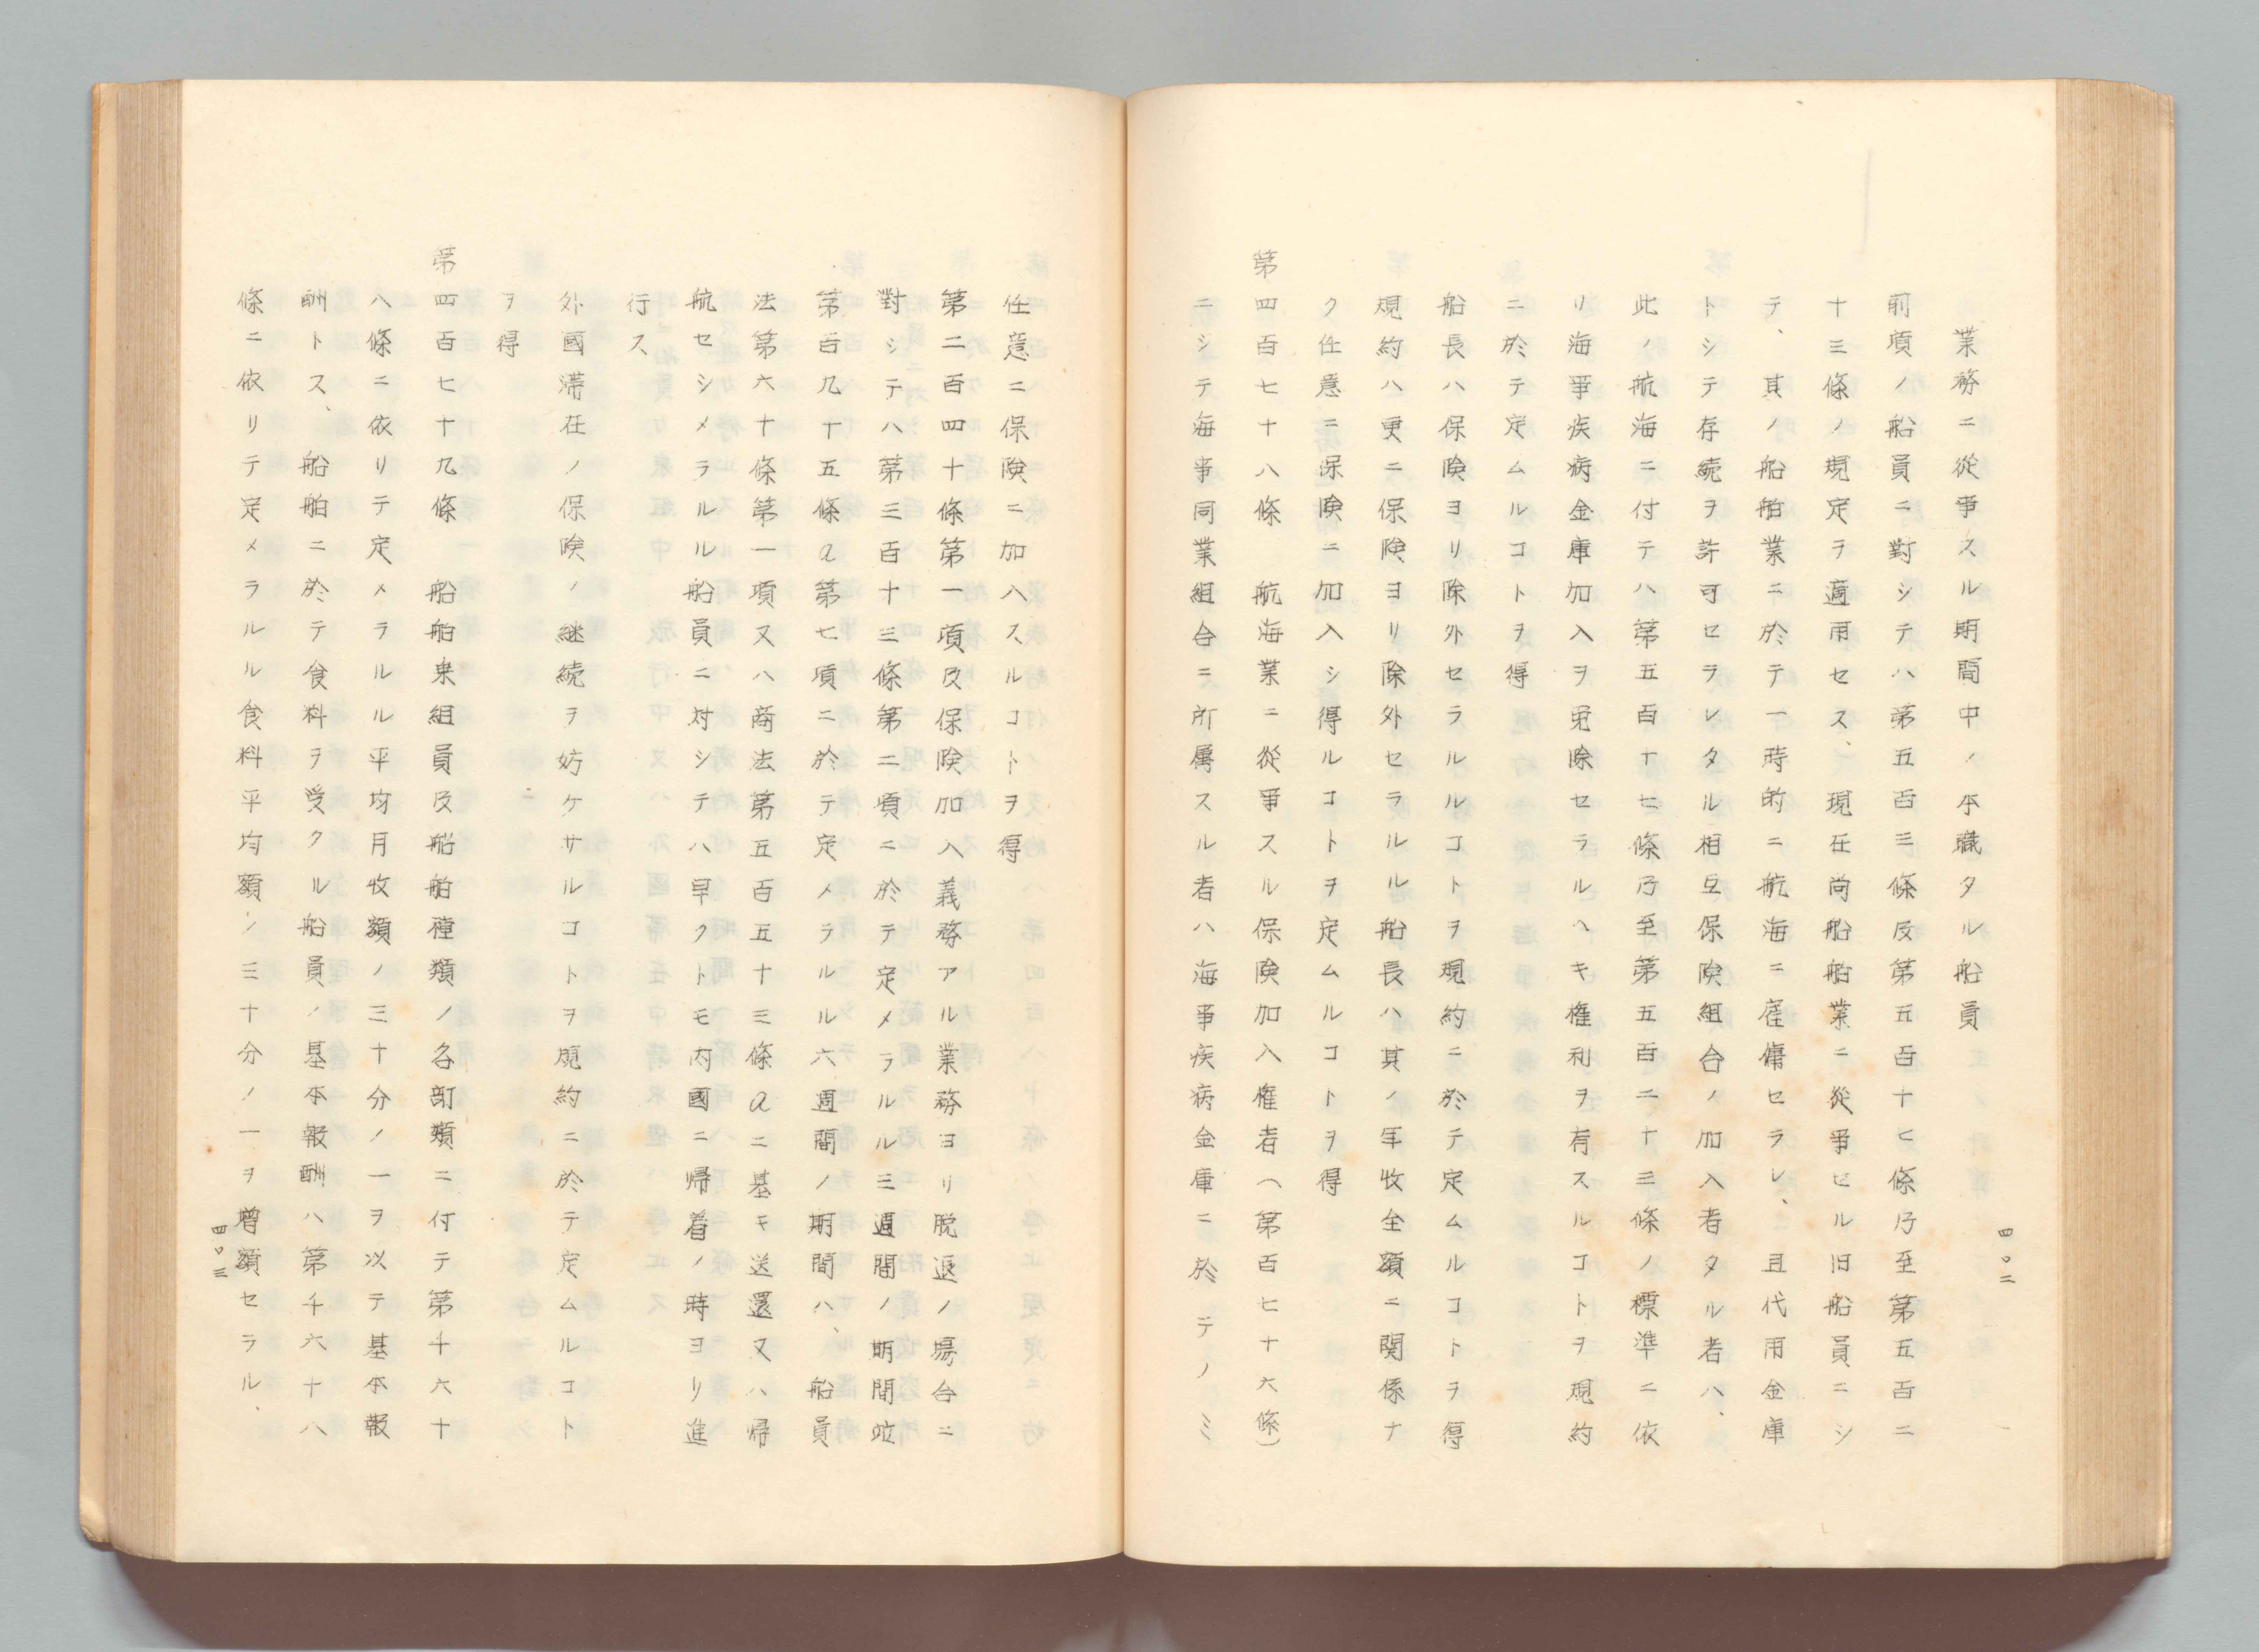 業務ニ從事スル期間中ノ本職タル船員
前項ノ船員ニ對シテハ第五百三條及第五百十七條乃至第五百二
十三條ノ規定ヲ適用セス、現在尚船舶業ニ從事セル旧船員ニシ
テ、其ノ船舶業ニ於テ一時的ニ航海ニ雇傭セラレ、且代用金庫
トシテ存続ヲ許可セラレタル相互保険組合ノ加入者タル者ハ、
此ノ航海ニ付テハ第五百十七條乃至第五百二十三條ノ標準ニ依
リ海事疾病金庫加入ヲ免除セラルヘキ権利ヲ有スルコトヲ規約
ニ於テ定ムルコトヲ得
船長ハ保険ヨリ除外セラルルコトヲ規約ニ於テ定ムルコトヲ得
規約ハ更ニ保険ヨリ除外セラルル船長ハ其ノ年收全額ニ関係ナ
ク任意ニ保険ニ加入シ得ルコトヲ定ムルコトヲ得
第四百七十八條 航海業ニ從事スル保険加入権者(第百七十六條)
ニシテ海事同業組合ニ所属スル者ハ海事疾病金庫ニ於テノミ
四〇二
任意ニ保険ニ加入スルコトヲ得
第二百四十條第一項及保険加入義務アル業務ヨリ脱退ノ場合ニ
對シテハ第三百十三條第二項ニ於テ定メラルル三週間ノ期間竝
第百九十五條a第七項ニ於テ定メラルル六週間ノ期間ハ、船員
法第六十條第一項又ハ商法第五百五十三條aニ基キ送還又ハ帰
航セシメラルル船員ニ対シテハ早クトモ内國ニ帰着ノ時ヨリ進
行ス
外國滞在ノ保険ノ継続ヲ妨ケサルコトヲ規約ニ於テ定ムルコト
ヲ得
第四百七十九條 船舶乗組員及船舶種類ノ各部類ニ付テ第千六十
八條ニ依リテ定メラルル平均月收額ノ三十分ノ一ヲ以テ基本報
酬トス、船舶ニ於テ食料ヲ受クル船員ノ基本報酬ハ第千六十八
條ニ依リテ定メラルル食料平均額ノ三十分ノ一ヲ増額セラル、
四〇三